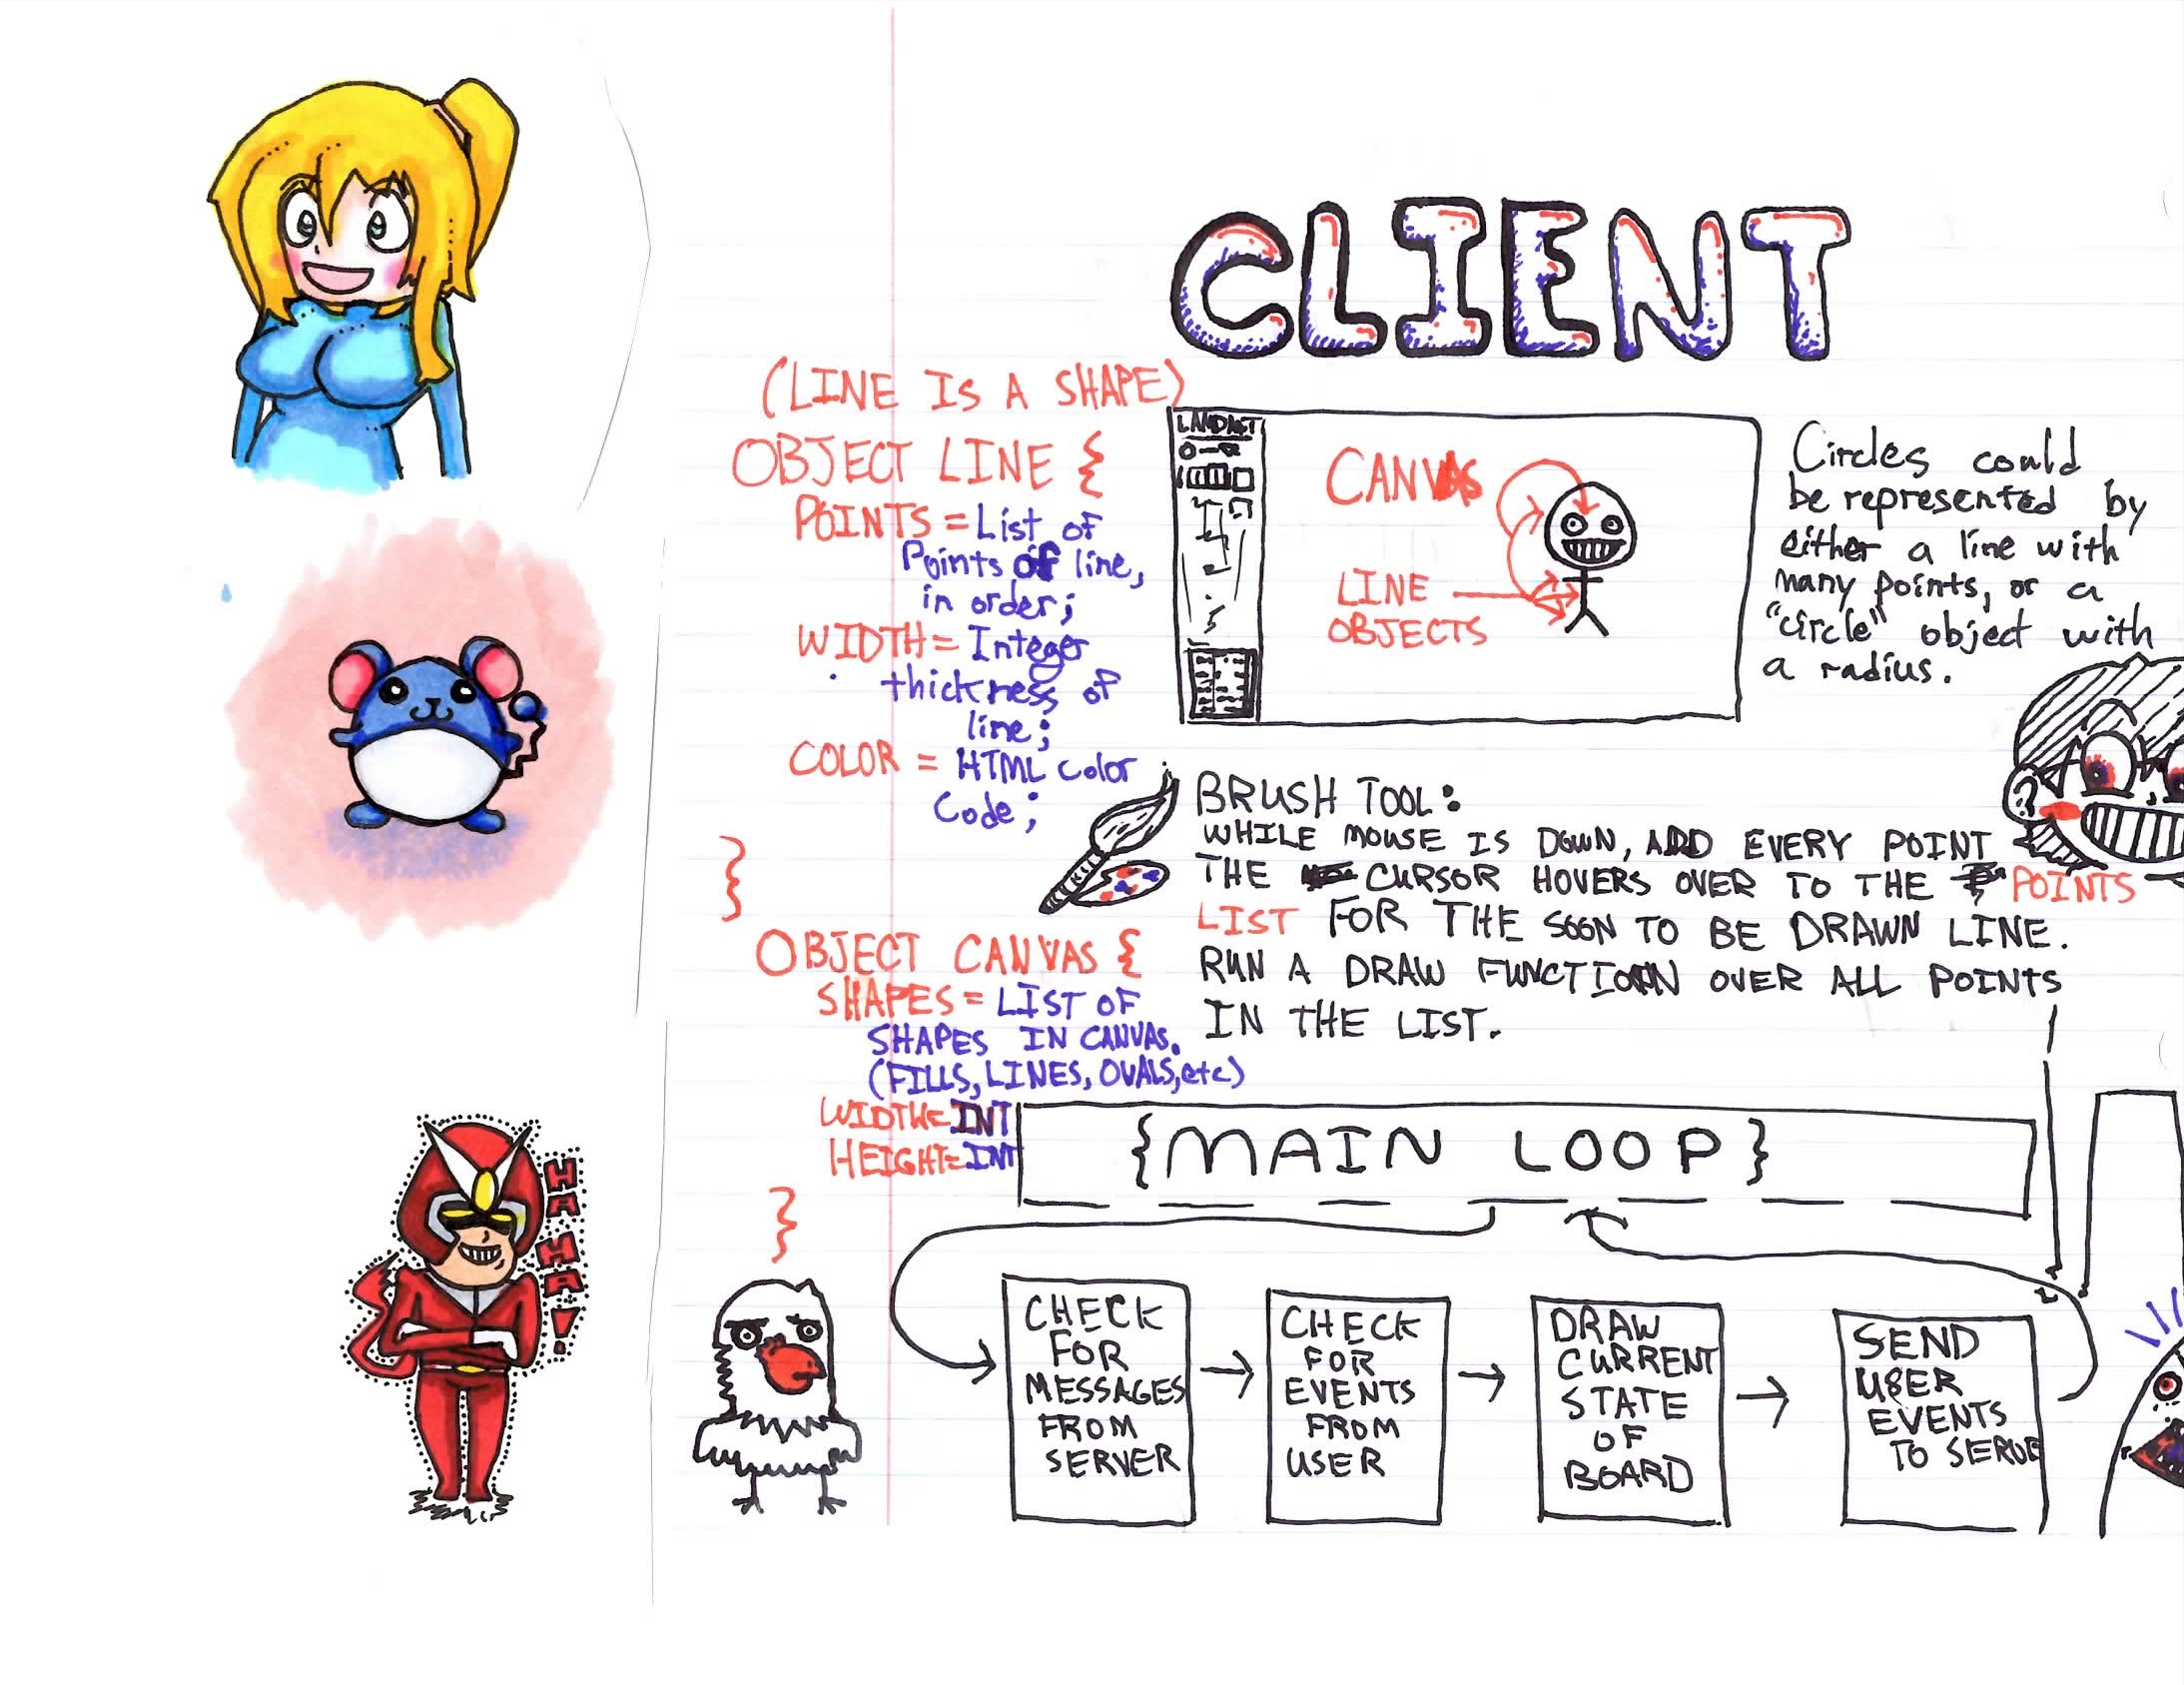 CLIENT
(LINE IS A SHAPE)
OBJECT LINE {
POINTS = List of
Points of line,
in order;
WIDTH = Integer
thickness of
line;
COLOR = HTML color
Code;
}
OBJECT CANVAS {
SHAPES = LIST OF
SHAPES IN CANVAS.
(FILLS, LINES, OVALS, etc)
WIDTH=INT
HEIGHT=INT
}
CANVAS
LINE
OBJECTS
Circles could
be represented by
either a line with
many points, or a
"circle" object with
a radius.
BRUSH TOOL:
WHILE MOUSE IS DOWN, ADD EVERY POINT
THE CURSOR HOVERS OVER TO THE POINTS
LIST FOR THE SOON TO BE DRAWN LINE.
RUN A DRAW FUNCTION OVER ALL POINTS
IN THE LIST.
{MAIN LOOP}
CHECK
FOR
MESSAGES
FROM
SERVER
CHECK
FOR
EVENTS
FROM
USER
DRAW
CURRENT
STATE
OF
BOARD
SEND
USER
EVENTS
TO SERVE
HA
HA!